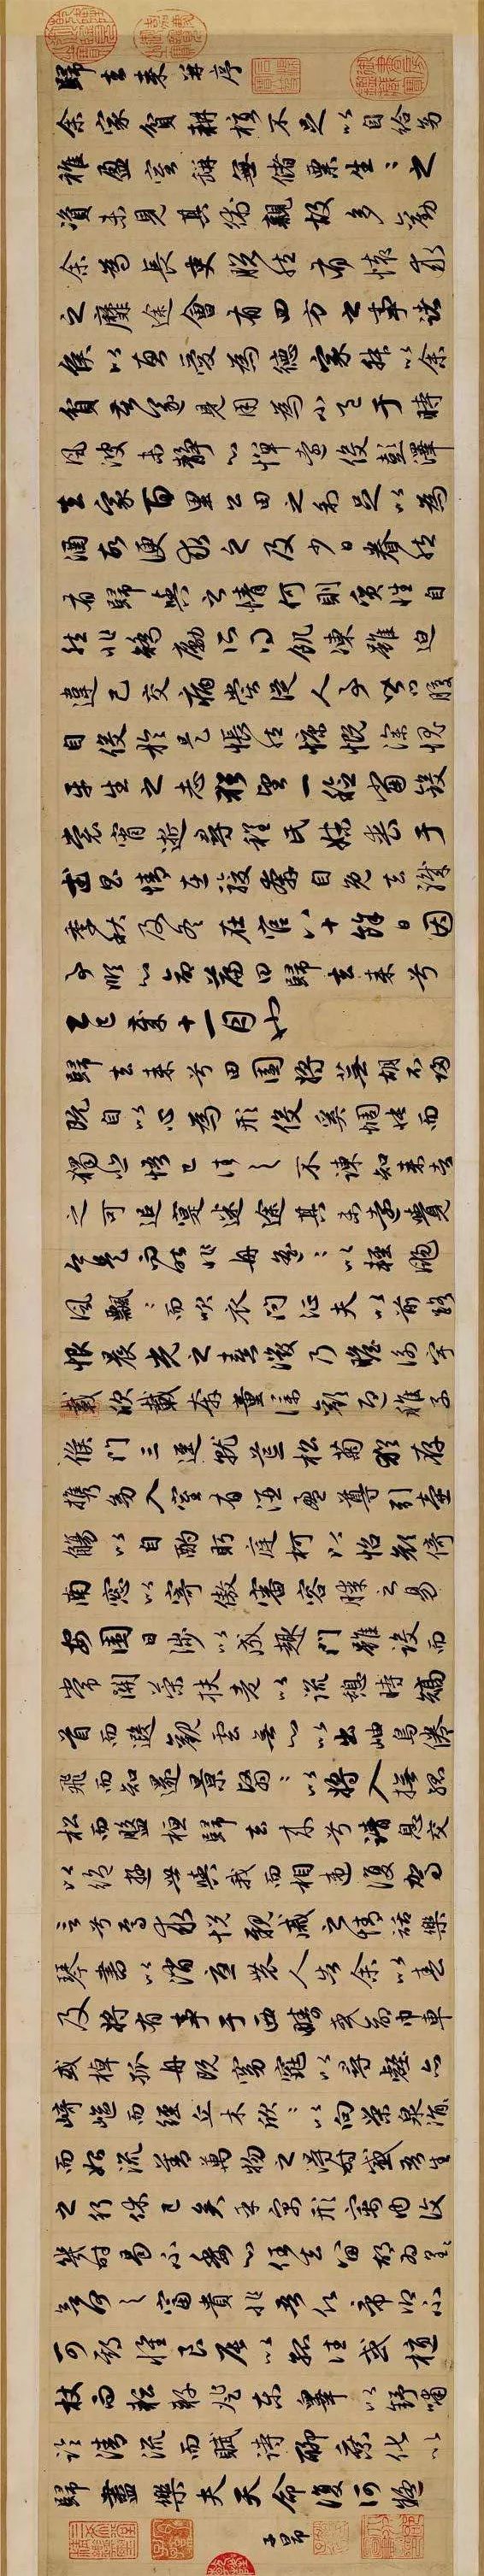 歸去来并序
余家貧耕植不足以自給幼
稚盈室缾無儲粟生〻之
資未見其術親故多勸
余為長吏脫然有懷求
之靡途會有四方之事諸
侯以惠愛為德家叔以余
貧苦遂見用為小邑于時
風波未靜心憚遠役彭澤
去家百里公田之利足以為
酒故便求之及少日眷然
有歸與之情何則質性自
然非矯勵所得飢凍雖迫
違己交病嘗從人事皆口腹
自役於是悵然慷慨深愧
平生之志猶望一稔當斂
裳宵逝尋程氏妹喪于
武昌情在駿奔自免去職
季秋及冬在官八十餘日因
事順心命篇曰歸去来兮
乙巳歲十一月也
歸去来兮田園將蕪胡不歸
既自以心為形役奚惆悵而
獨悲悟已往之不諫知来者
之可追寔迷途其未遠覺
今是而昨非舟遙〻以輕颺
風飄〻而吹衣問征夫以前路
恨晨光之熹微乃瞻衡宇
載欣載奔童僕歡迎稚子
候門三逕就荒松菊猶存
攜幼入室有酒盈尊引壺
觴以自酌眄庭柯以怡顏倚
南窓以寄傲審容膝之易
安園日涉以成趣門雖設而
常關策扶老以流憩時矯
首而遐觀雲無心以出岫鳥倦
飛而知還景翳〻以將入撫孤
松而盤桓歸去来兮請息交
以絕遊世與我而相遺復駕
言兮焉求悅親戚之情話樂
琴書以消憂農人告余以春
及將有事于西疇或命巾車
或棹孤舟既窈窕以尋壑亦
崎嶇而經丘木欣〻以向榮泉涓〻
而始流善萬物之得時感吾生
之行休已矣乎寓形宇內復
幾時曷不委心任去留胡為遑〻
欲何之富貴非吾願帝鄉不
可期懷良辰以孤往或植
杖而耘耔登東皋以舒嘯
臨清流而賦詩聊乘化以
歸盡樂夫天命復何疑
子昂